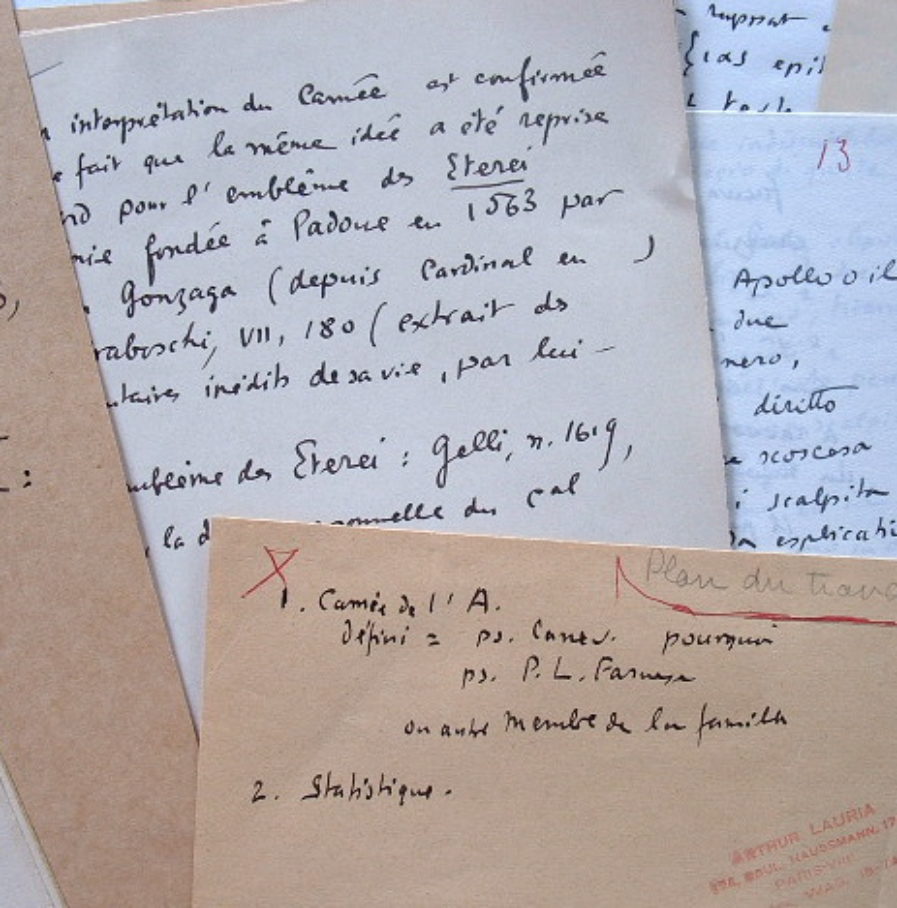 interprétation du Camée est confirmée
fait que la même idée a été reprise
pour l'emblême des Eterei
fondée à Padoue en 1563 par
Gonzaga (depuis Cardinal en )
raboschi, VII, 180 (extrait des
taires inédits de sa vie, par lui-
mblême des Eterei : Gelli, n. 1619,
la d onnelle du cal
13
Apollo o il
due
nero,
diritto
scoscesa
i scalpita
esplicati
Plan du trava
1. Camée de l'A.
défini = ps. Canev. pourquoi
ps. P. L. Farnese
ou autre membre de la famille
2. Statistique.
ARTHUR LAURIA
BOUL. HAUSSMANN, 17
PARIS-VIII
WAG.